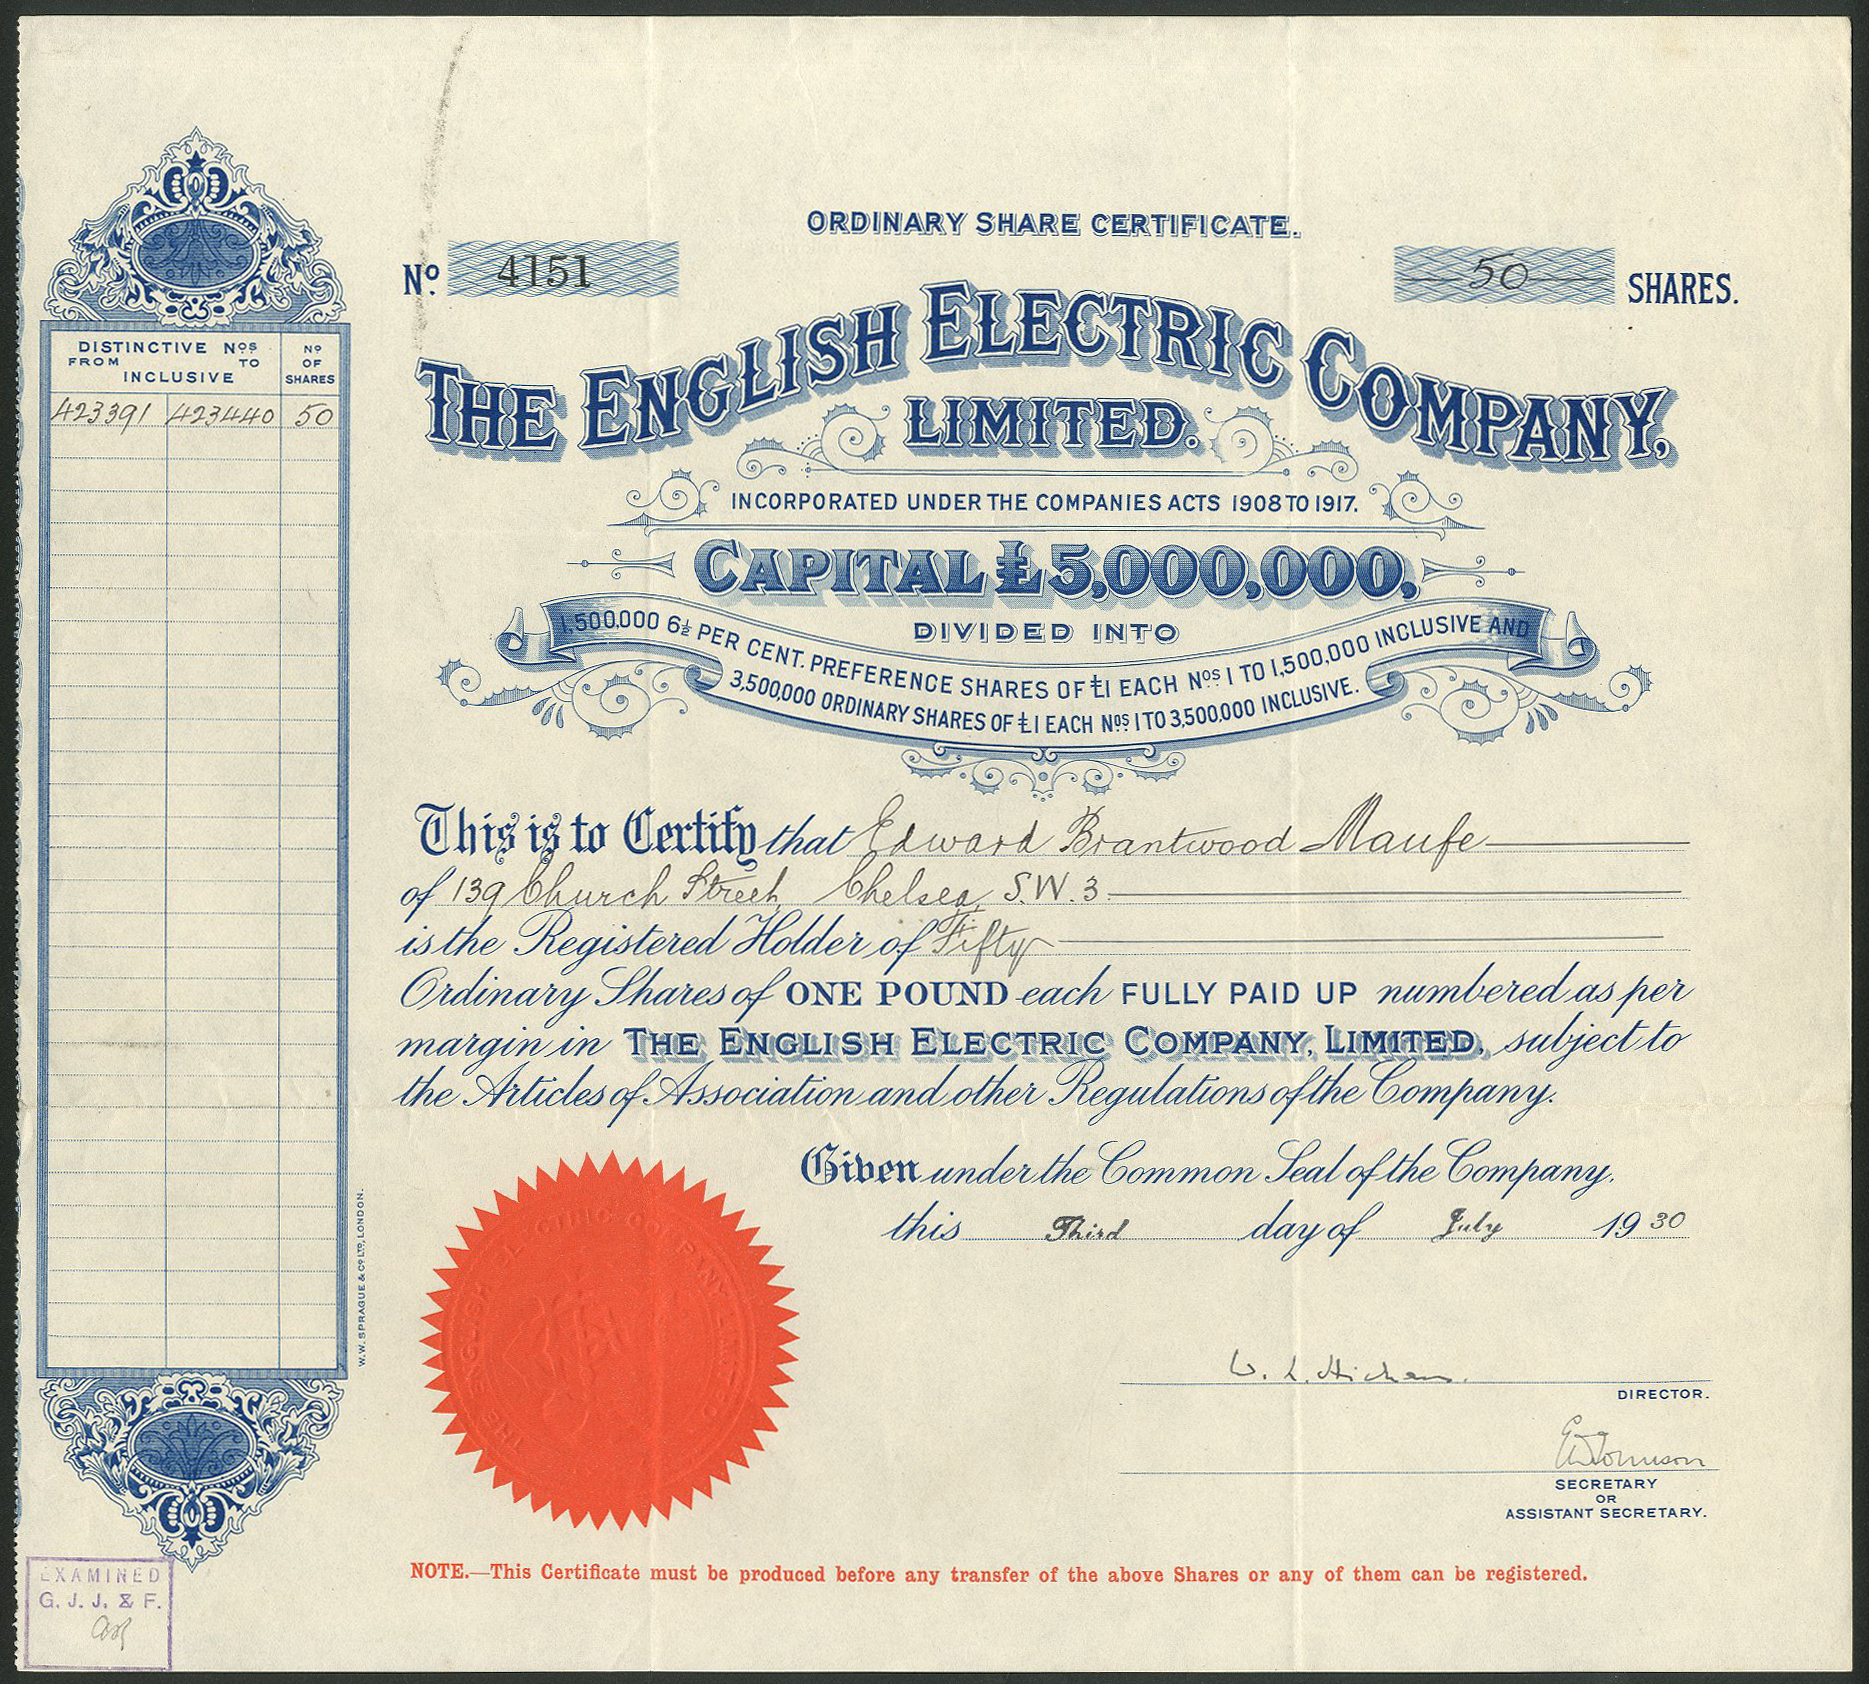 ORDINARY SHARE CERTIFICATE.
No. 4151
50 SHARES.
THE ENGLISH ELECTRIC COMPANY,
LIMITED.
INCORPORATED UNDER THE COMPANIES ACTS 1908 TO 1917.
CAPITAL £5,000,000,
DIVIDED INTO
1,500,000 6½ PER CENT. PREFERENCE SHARES OF £1 EACH Nos. 1 TO 1,500,000 INCLUSIVE AND
3,500,000 ORDINARY SHARES OF £1 EACH Nos. 1 TO 3,500,000 INCLUSIVE.
DISTINCTIVE Nos
FROM TO
INCLUSIVE
No
OF
SHARES
423391 423440 50
This is to Certify that Edward Brantwood Maufe
of 139 Church Street, Chelsea, S.W.3.
is the Registered Holder of Fifty
Ordinary Shares of ONE POUND each FULLY PAID UP numbered as per
margin in THE ENGLISH ELECTRIC COMPANY, LIMITED, subject to
the Articles of Association and other Regulations of the Company.
Given under the Common Seal of the Company.
this Third day of July 1930
W. L. Hichens.
DIRECTOR.
SECRETARY
OR
ASSISTANT SECRETARY.
NOTE.—This Certificate must be produced before any transfer of the above Shares or any of them can be registered.
W. W. SPRAGUE & CO. LTD., LONDON.
EXAMINED
G. J. J. & F.